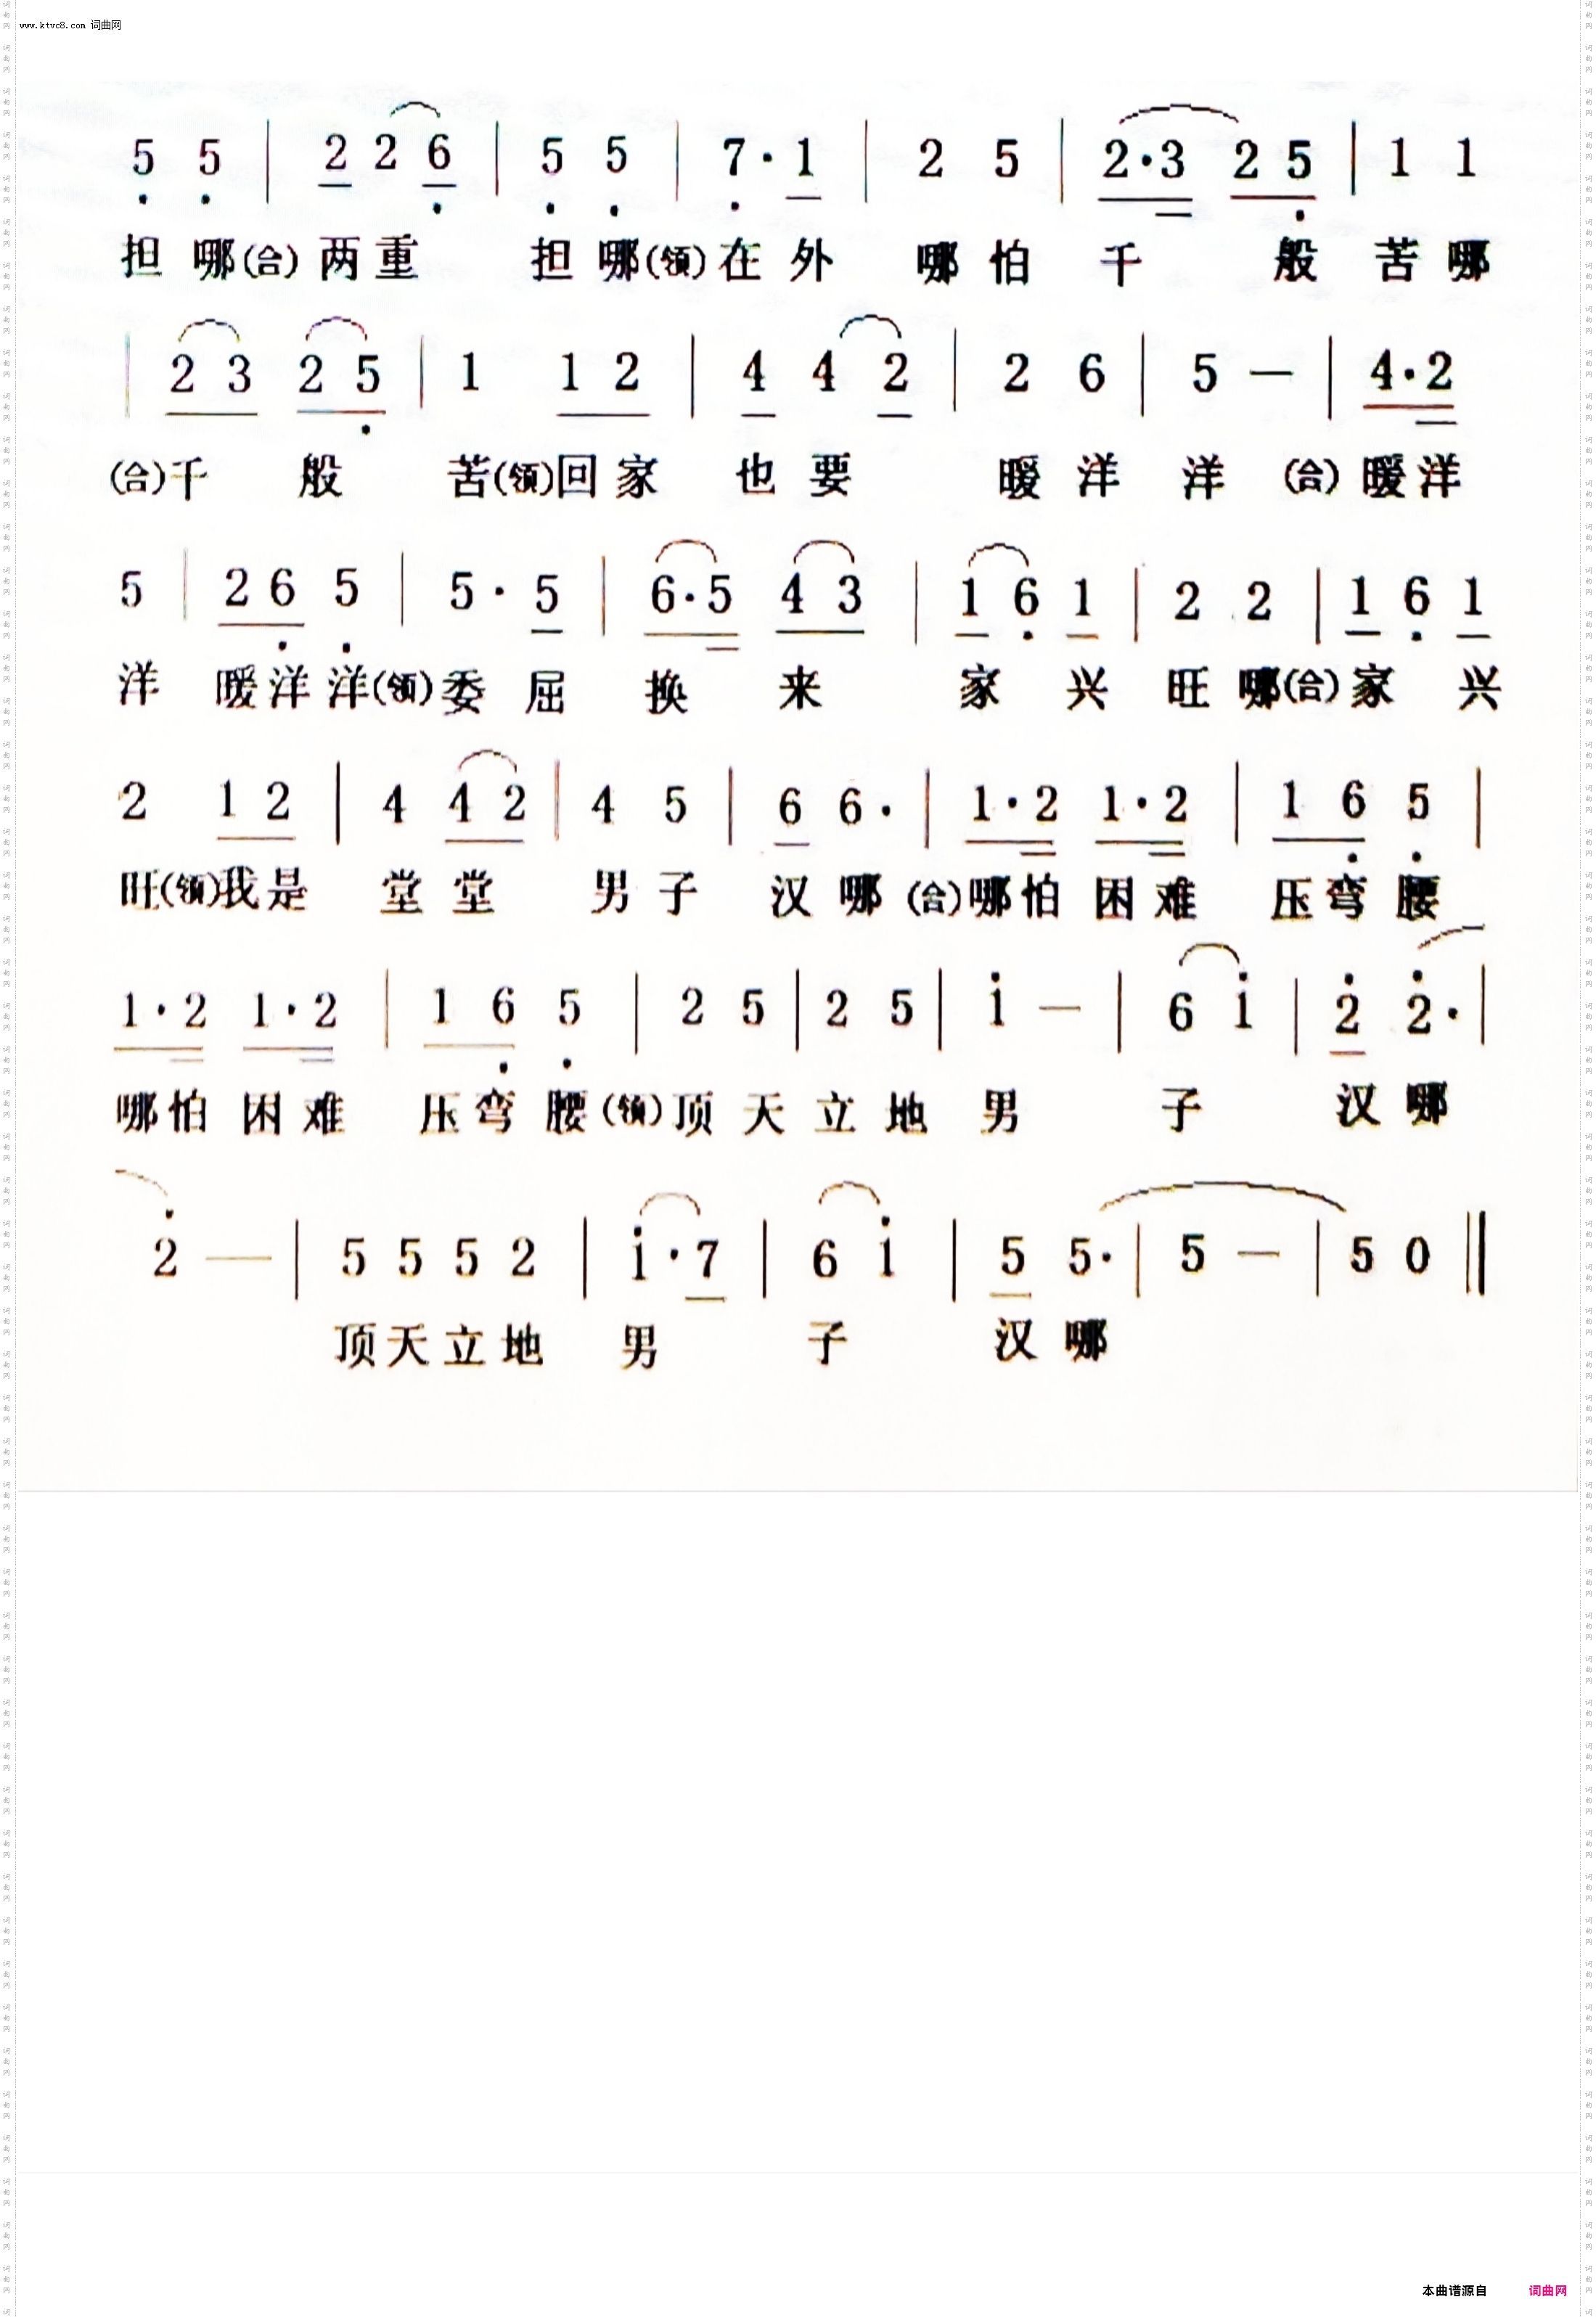 www.ktvc8.com 词曲网
5 5 | 2 2 6 | 5 5 | 7 · 1 | 2 5 | 2·3 2 5 | 1 1
担 哪(合) 两重 担 哪(领) 在 外 哪 怕 千 般 苦 哪
| 2 3 2 5 | 1 1 2 | 4 4 2 | 2 6 | 5 — | 4·2
(合)千 般 苦(领)回 家 也 要 暖 洋 洋 (合) 暖洋
5 | 2 6 5 | 5 · 5 | 6·5 4 3 | 1 6 1 | 2 2 | 1 6 1
洋 暖洋洋(领)委 屈 换 来 家 兴 旺 哪(合)家 兴
2 1 2 | 4 4 2 | 4 5 | 6 6· | 1·2 1·2 | 1 6 5 |
旺(领)我是 堂 堂 男 子 汉 哪 (合)哪怕 困难 压弯 腰
1·2 1·2 | 1 6 5 | 2 5 | 2 5 | 1 — | 6 1 | 2 2· |
哪怕 困难 压弯 腰(领)顶 天 立 地 男 子 汉 哪
2 — | 5 5 5 2 | 1·7 | 6 1 | 5 5· | 5 — | 5 0 ‖
顶天立地 男 子 汉 哪
本曲谱源自 词曲网